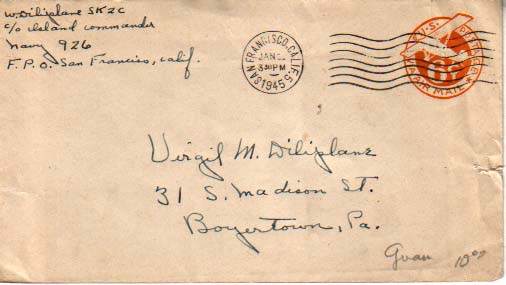 W. Diliplane SK2C
c/o Island Commander
Navy 926
F.P.O. San Francisco, Calif.
SAN FRANCISCO, CALIF.
JAN
3 PM
1945
U.S. POSTAGE
6¢
AIR MAIL
Virgil M. Diliplane
31 S. Madison St.
Boyertown, Pa.
Guam 10⁰⁰